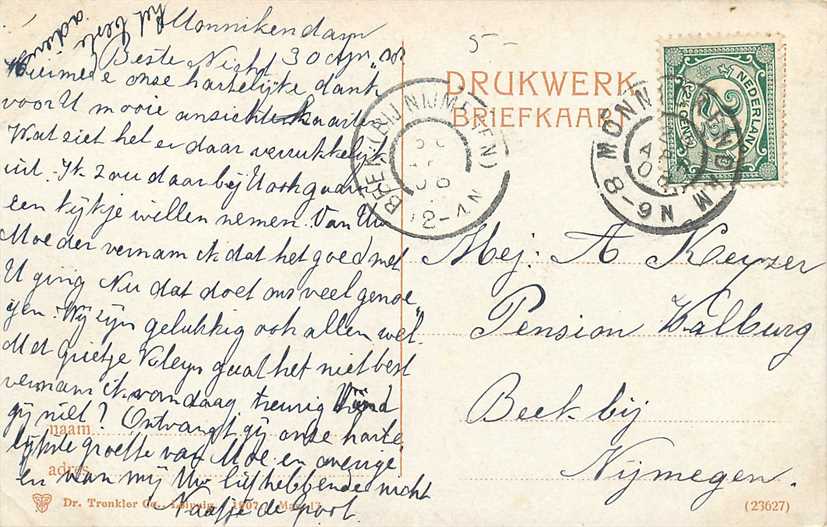 Monnikendam
30 Aug 08
Beste Nicht
Hiermede onze hartelijke dank
voor U mooie ansichtkaarten
Wat ziet het er daar verrukkelijk
uit. Ik zou daar bij U ook gaa
een kijkje willen nemen. Van Uw
Moeder vernam ik dat het goed met
U ging Nu dat doet ons veel genoe
gen. Wij zijn gelukkig ook allen wel.
Met Grietje Kleyn gaat het niet best
vernam ik vandaag treurig vind
gij niet? Ontvangt gij onze harte
lijkste groette van Moe en overige
en van mij Uw liefhebbende nicht
Naatje de
het beste
adieu
5-
DRUKWERK
BRIEFKAART
NEDERLAND
2½
BEEK (BIJ NIJMEGEN)
12-1 N
MONNIKENDAM
8-9 N
Mej: A Keyzer
Pension Walburg
Beek bij
Nijmegen.
naam
adres
Dr. Trenkler Co., Leipzig. 1907. Mar. 13
(23627)